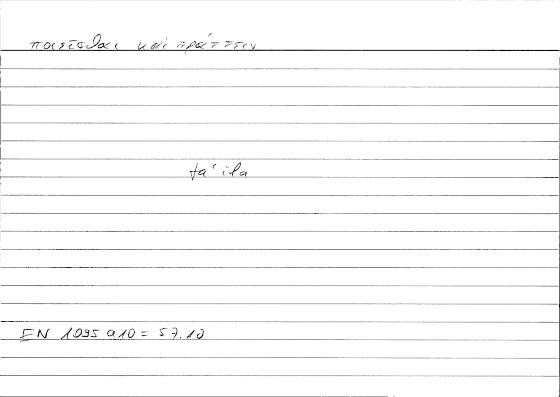 ποιεῖσθαι καὶ πράττειν
faʿila
EN 1095 a10 = 57.10